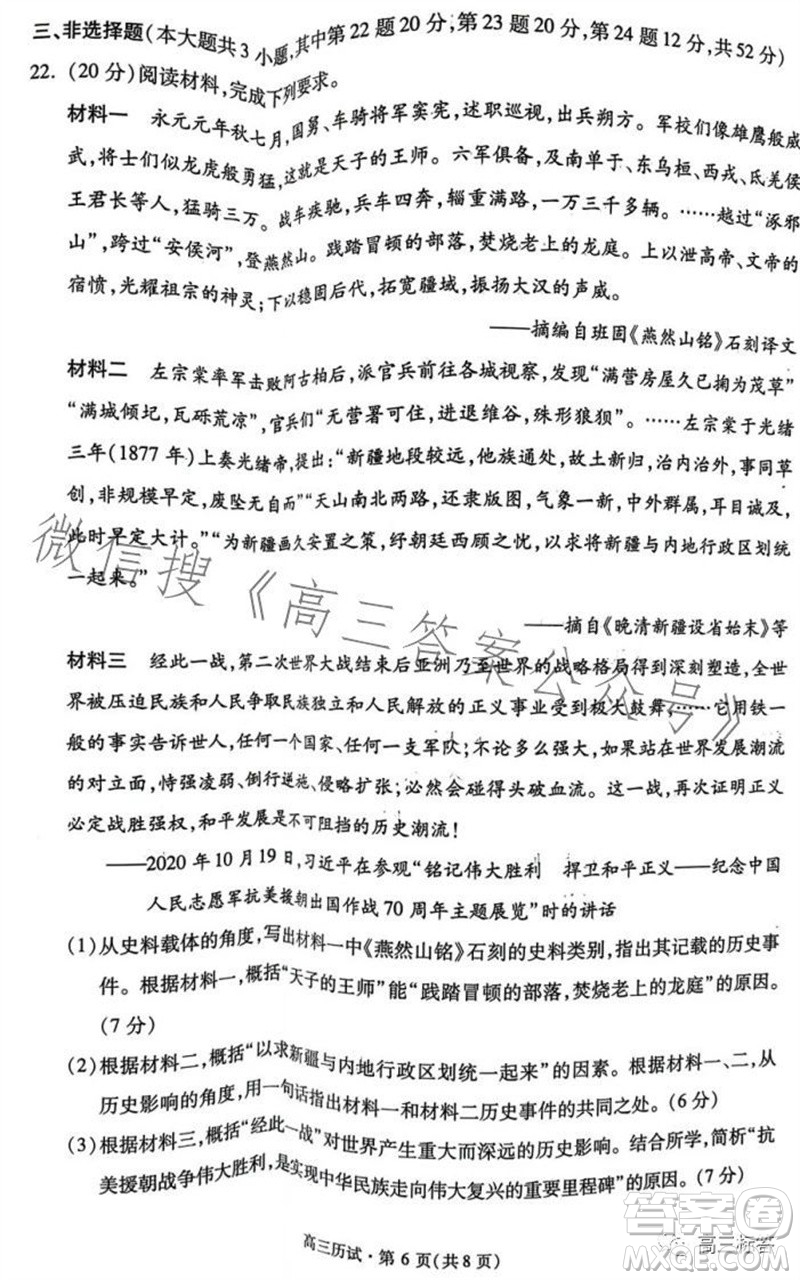 三、非选择题(本大题共3小题,其中第22题20分,第23题20分,第24题12分,共52分)
22. (20分)阅读材料,完成下列要求。
材料一 永元元年秋七月,国舅、车骑将军窦宪,述职巡视,出兵朔方。军校们像雄鹰般威
武,将士们似龙虎般勇猛,这就是天子的王师。六军俱备,及南单于、东乌桓、西戎、氐羌侯
王君长等人,猛骑三万。战车疾驰,兵车四奔,辎重满路,一万三千多辆。……越过“涿邪
山”,跨过“安侯河”,登燕然山。践踏冒顿的部落,焚烧老上的龙庭。上以泄高帝、文帝的
宿愤,光耀祖宗的神灵;下以稳固后代,拓宽疆域,振扬大汉的声威。
——摘编自班固《燕然山铭》石刻译文
材料二 左宗棠率军击败阿古柏后,派官兵前往各城视察,发现“满营房屋久已掬为茂草”
“满城倾圮,瓦砾荒凉”,官兵们“无营署可住,进退维谷,殊形狼狈”。……左宗棠于光绪
三年(1877年)上奏光绪帝,提出:“新疆地段较远,他族通处,故土新归,治内治外,事同草
创,非规模早定,废坠无自而”“天山南北两路,还隶版图,气象一新,中外群属,耳目诫及,
此时早定大计。”“为新疆画久安置之策,纾朝廷西顾之忧,以求将新疆与内地行政区划统
一起来。”
——摘自《晚清新疆设省始末》等
材料三 经此一战,第二次世界大战结束后亚洲乃至世界的战略格局得到深刻塑造,全世
界被压迫民族和人民争取民族独立和人民解放的正义事业受到极大鼓舞……它用铁一
般的事实告诉世人,任何一个国家、任何一支军队;不论多么强大,如果站在世界发展潮流
的对立面,恃强凌弱、倒行逆施、侵略扩张;必然会碰得头破血流。这一战,再次证明正义
必定战胜强权,和平发展是不可阻挡的历史潮流!
——2020年10月19日,习近平在参观“铭记伟大胜利 捍卫和平正义——纪念中国
人民志愿军抗美援朝出国作战70周年主题展览”时的讲话
(1)从史料载体的角度,写出材料一中《燕然山铭》石刻的史料类别,指出其记载的历史事
件。根据材料一,概括“天子的王师”能“践踏冒顿的部落,焚烧老上的龙庭”的原因。
(7分)
(2)根据材料二,概括“以求新疆与内地行政区划统一起来”的因素。根据材料一、二,从
历史影响的角度,用一句话指出材料一和材料二历史事件的共同之处。(6分)
(3)根据材料三,概括“经此一战”对世界产生重大而深远的历史影响。结合所学,简析“抗
美援朝战争伟大胜利,是实现中华民族走向伟大复兴的重要里程碑”的原因。(7分)
高三历试·第6页(共8页)
微信搜《高三答案公众号》
答案圈
MXQE.COM
高三标答